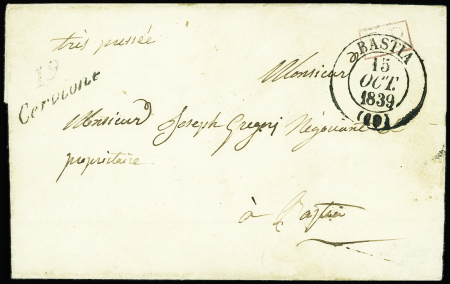 très pressée
19
Cervione
BASTIA
15
OCT.
1839
(19)
Monsieur
Monsieur Joseph Gregorj Négociant &
propriétaire
à Bastia